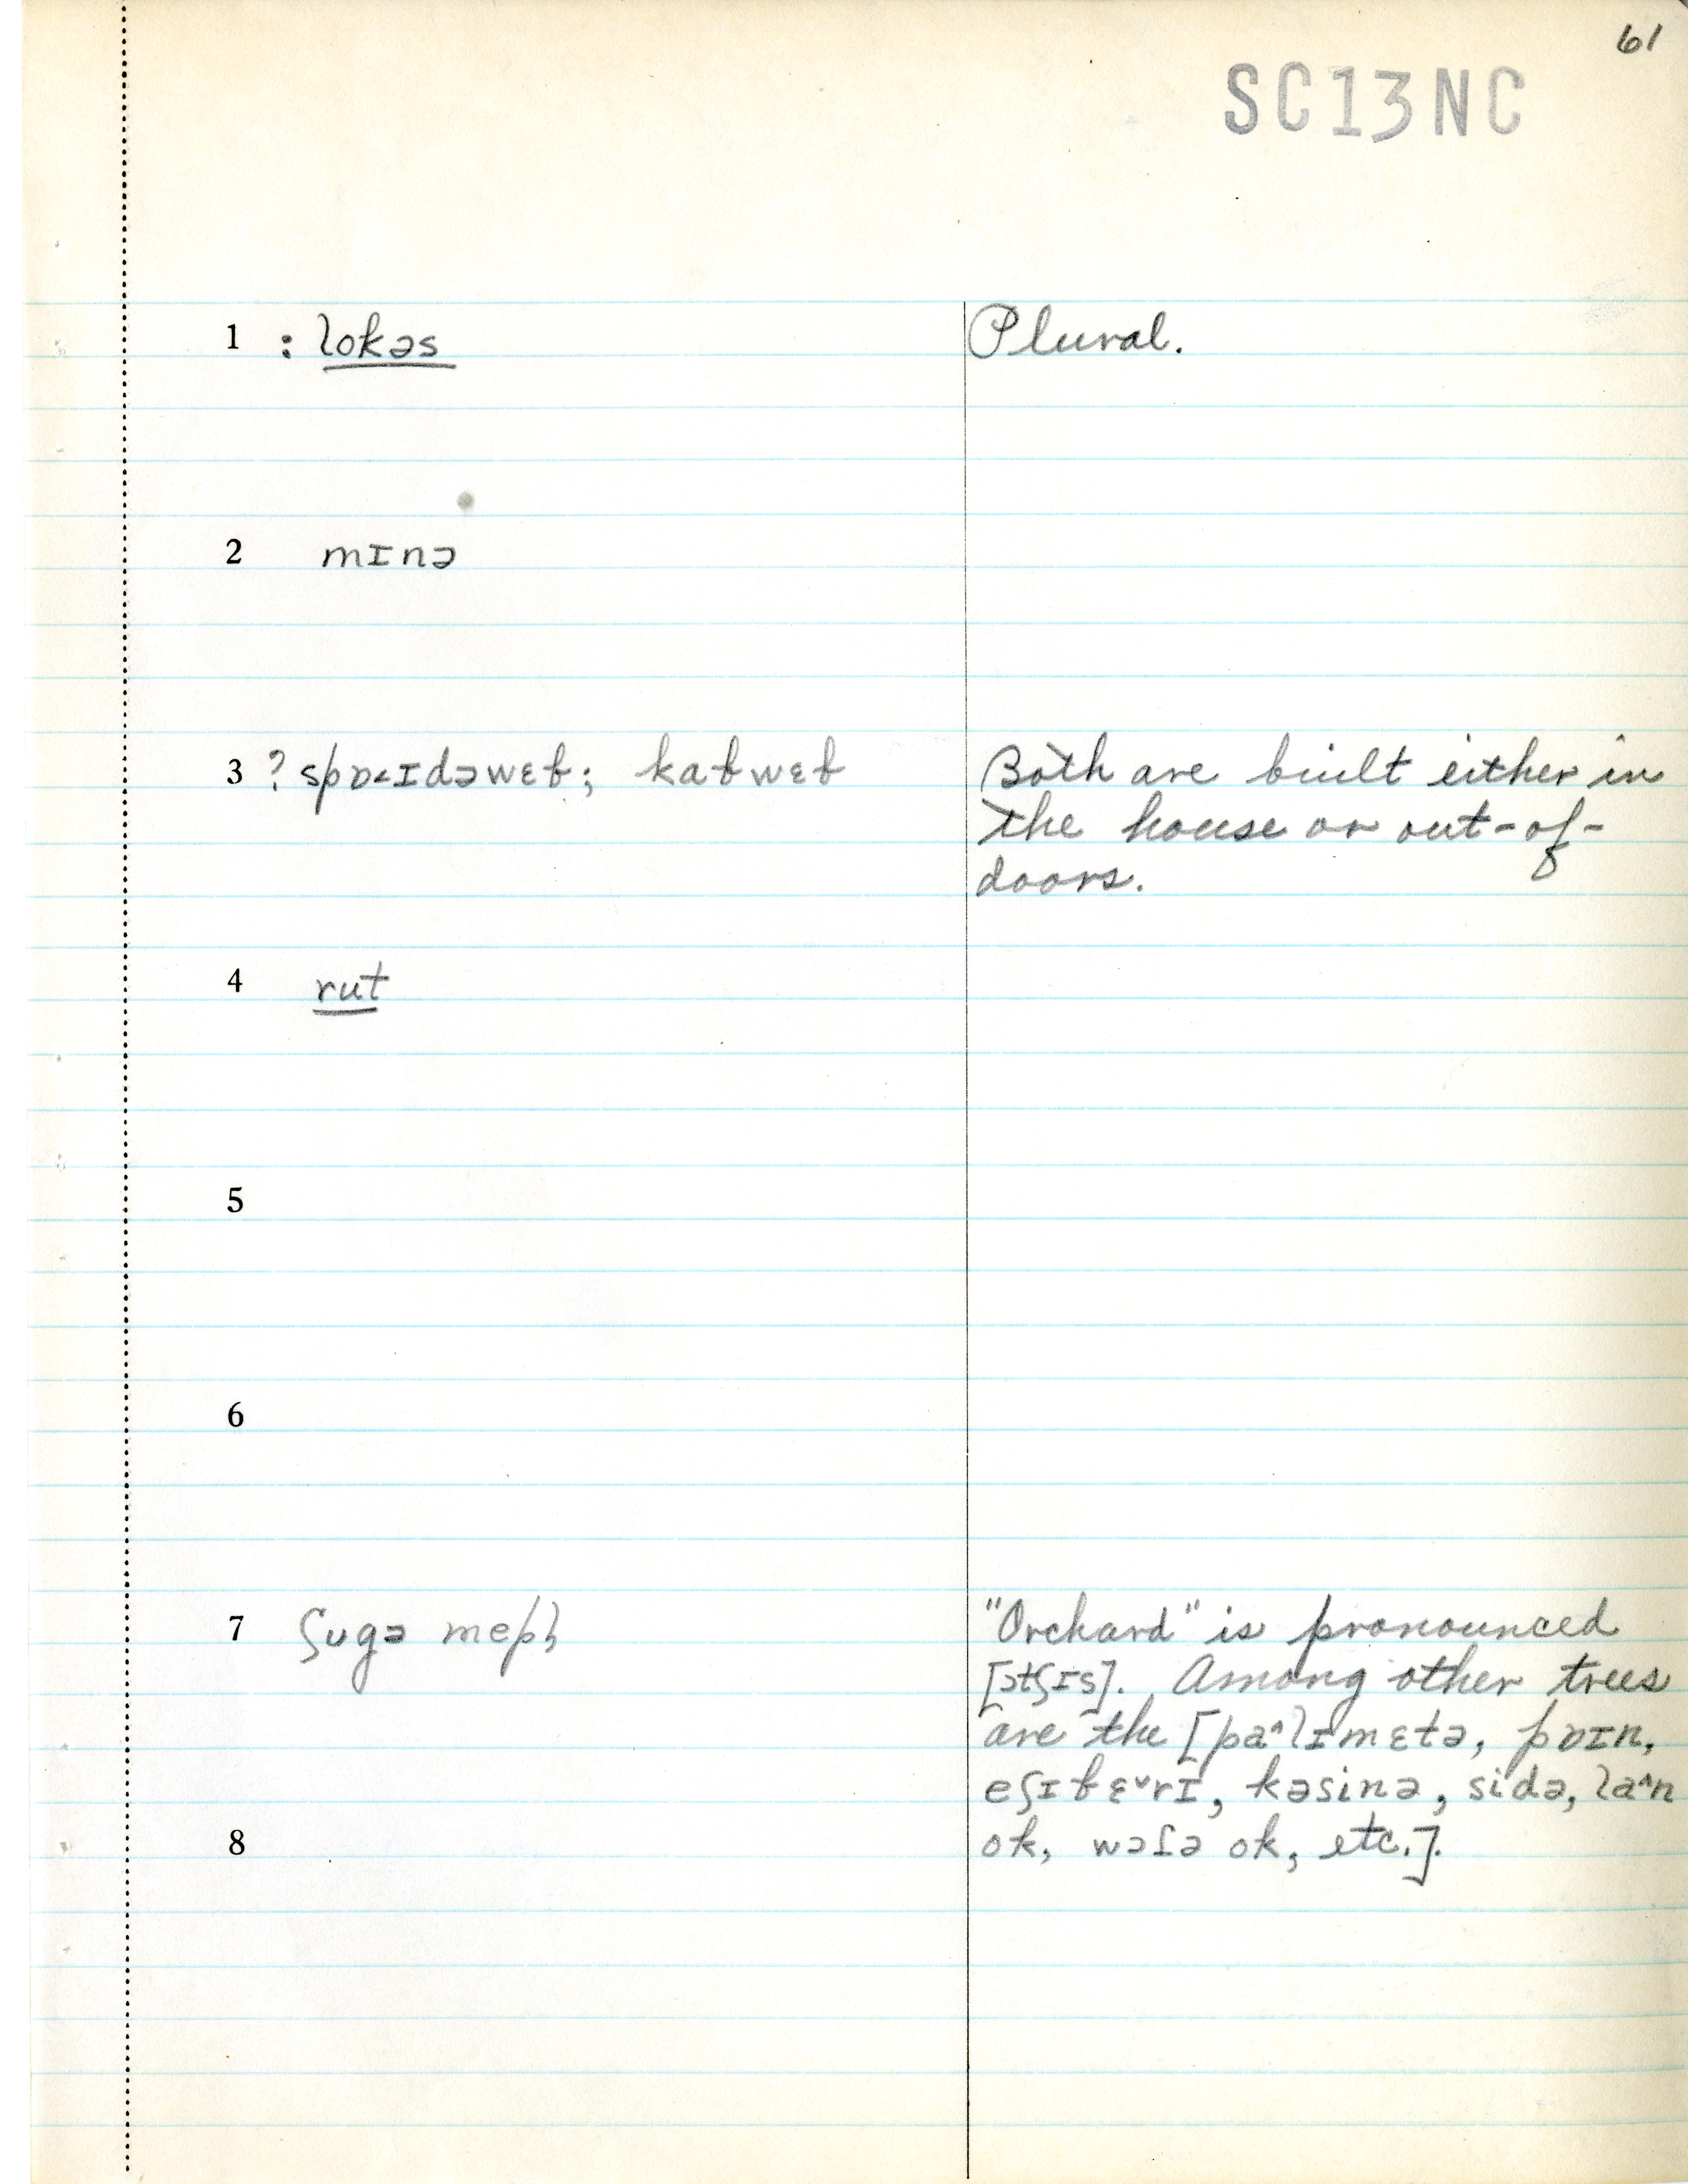 61
SC13NC
1 : lokəs Plural.
2 mɪnə
3 ? spɒ˂ɪdəwɛb; kabwɛb Both are built either in
the house or out-of-
doors.
4 rut
5
6
7 ʃugə mepl "Orchard" is pronounced
[ɔtʃɪs]. Among other trees
are the [pa^lɪmɛtə, pɒɪn,
eʃɪbɛ˅rɪ, kəsinə, sidə, la^n
8 ok, wɔɾə ok, etc.].